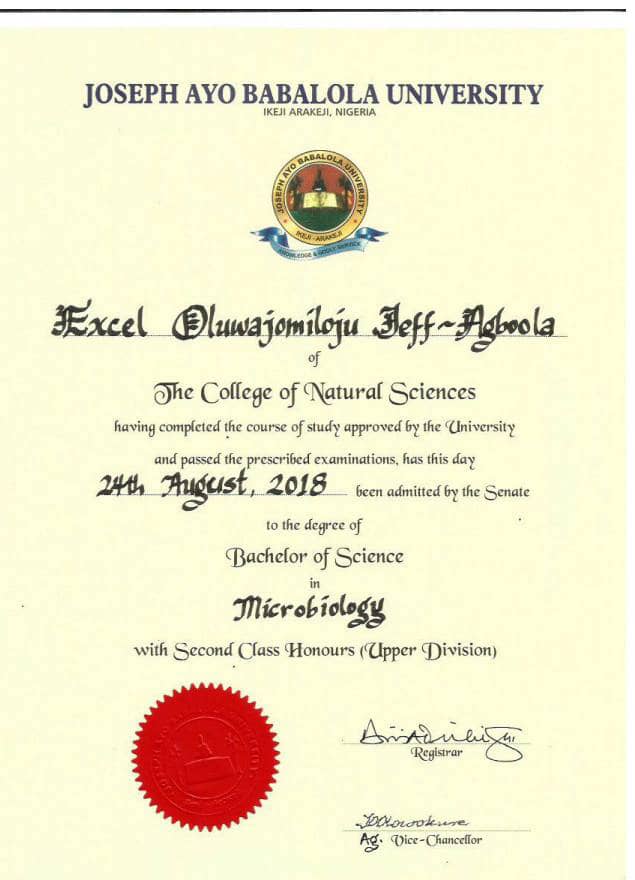 JOSEPH AYO BABALOLA UNIVERSITY
IKEJI ARAKEJI, NIGERIA
JOSEPH AYO BABALOLA UNIVERSITY
IKEJI-ARAKEJI
KNOWLEDGE & GODLY SERVICE
Excel Oluwajomiloju Jeff-Agboola
of
The College of Natural Sciences
having completed the course of study approved by the University
and passed the prescribed examinations, has this day
24th August, 2018 been admitted by the Senate
to the degree of
Bachelor of Science
in
Microbiology
with Second Class Honours (Upper Division)
Registrar
Ag. Vice-Chancellor